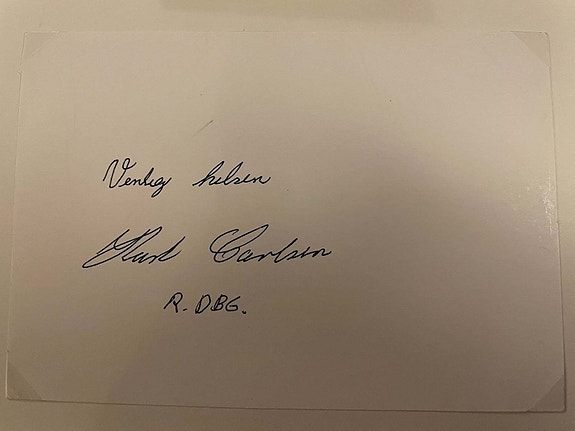 Venlig hilsen
Carlsen
R. DBG.